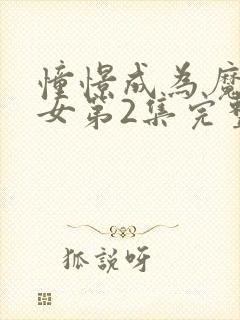 憧憬成為魔
女第2集完整
狐説呀